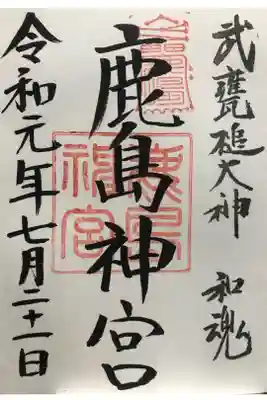 武甕槌大神 和魂
鹿島神宮
鹿島
神宮
令和元年七月二十一日